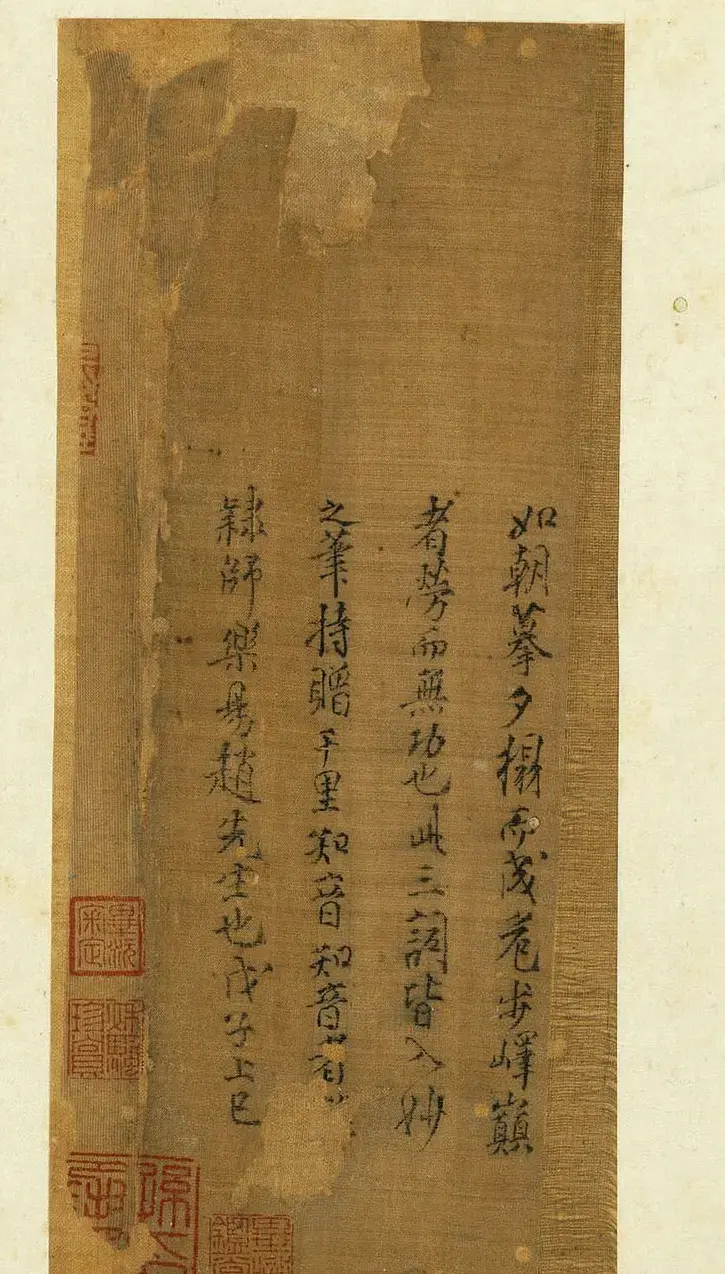 如朝摹夕搨而成卷步嶧巔
者勞而無功也此三詞皆入妙
之筆持贈千里知音知音者
隸師樂易趙先生也戊子上巳
珍賞